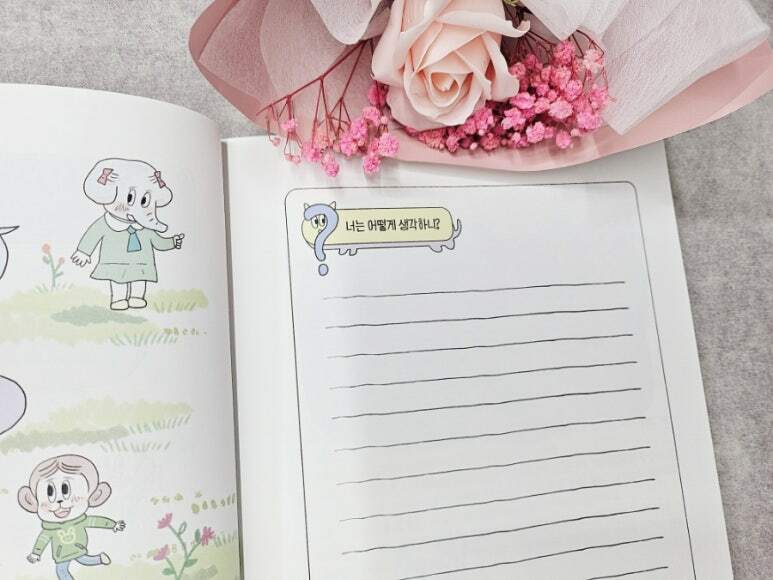 너는 어떻게 생각하니?